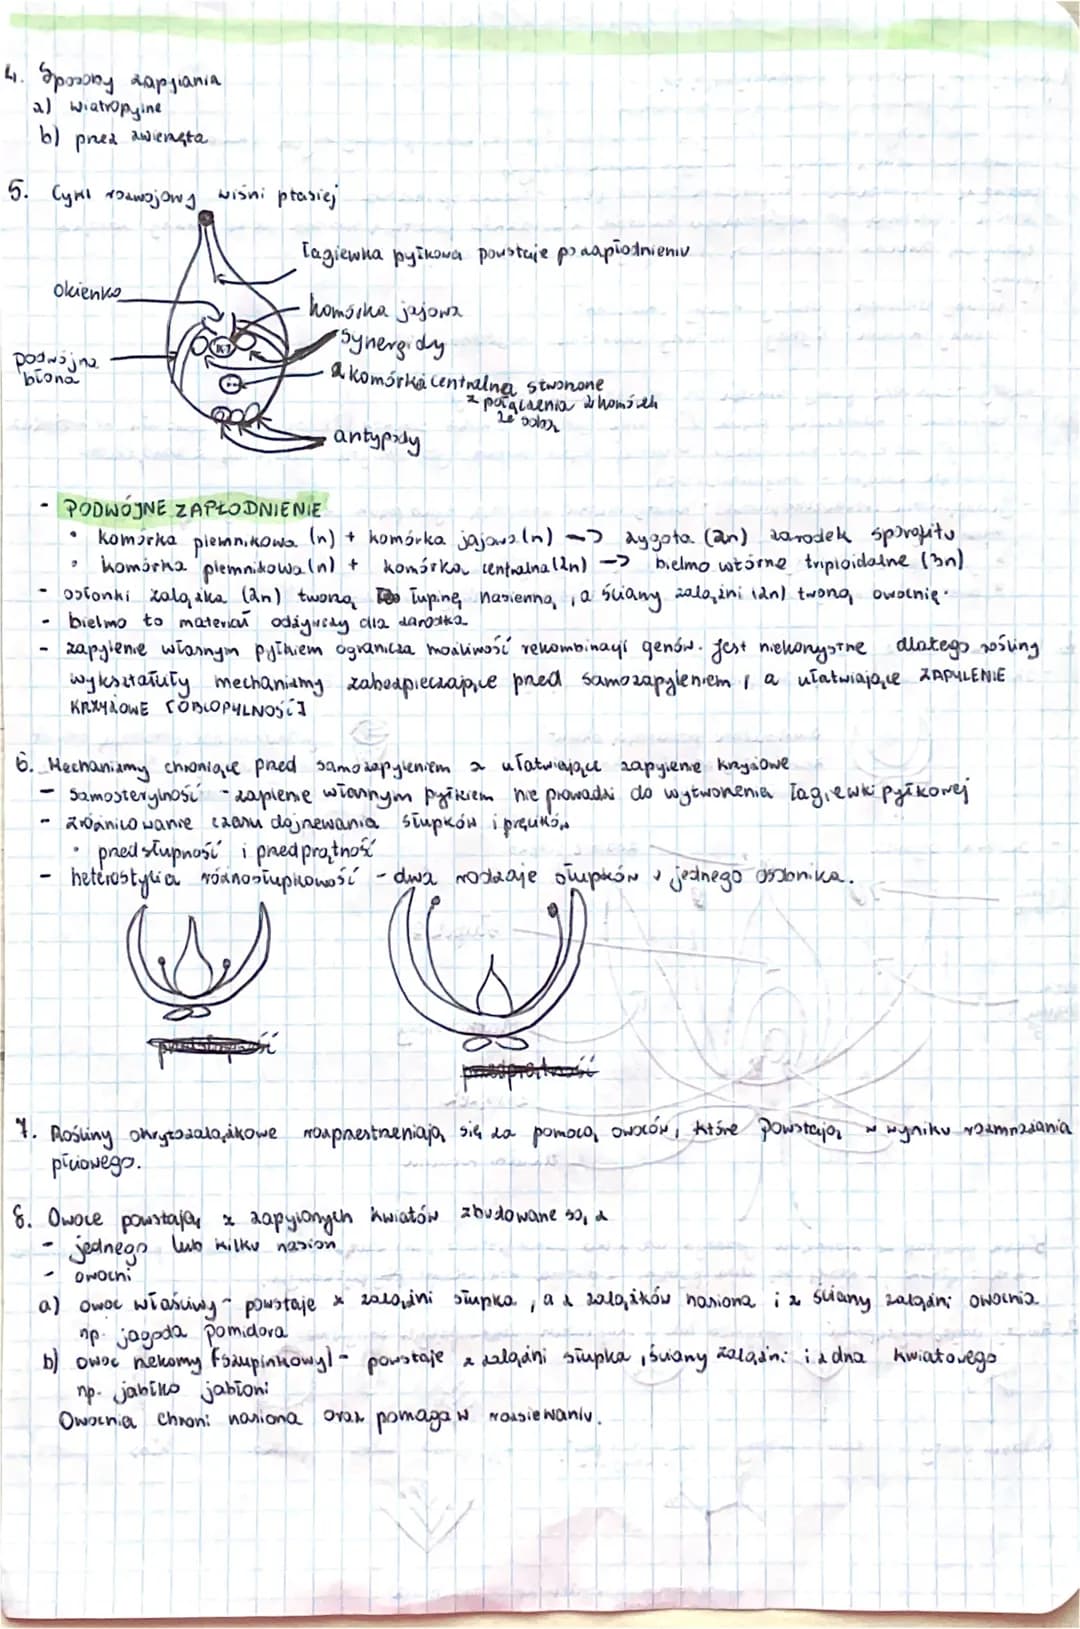 4. Sposoby zapylania
a) wiatropylne
b) przez zwierzęta
5. Cykl rozwojowy wiśni ptasiej
łagiewka pyłkowa powstaje po zapłodnieniu
okienko
komórka jajowa
synergidy
podwójna
błona
komórka centralna stworzone
z połączenia 2 komórek
ze sobą
antypody
- PODWÓJNE ZAPŁODNIENIE
• komórka plemnikowa (n) + komórka jajowa (n) -> zygota (2n) zarodek sporofitu
• komórka plemnikowa (n) + komórka centralna (2n) -> bielmo wtórne triploidalne (3n)
- osłonki zalążka (2n) tworzą łupinę nasienną, a ściany zalążni (2n) tworzą owocnię.
- bielmo to materiał odżywczy dla zarodka
- zapylenie własnym pyłkiem ogranicza możliwość rekombinacji genów. Jest niekorzystne dlatego rośliny
wykształciły mechanizmy zabezpieczające przed samozapyleniem, a ułatwiające ZAPYLENIE
KRZYŻOWE [OBCOPYLNOŚĆ]
6. Mechanizmy chroniące przed samozapyleniem a ułatwiające zapylenie krzyżowe
- samosterylność - zaplenie własnym pyłkiem nie prowadzi do wytworzenia łagiewki pyłkowej
- zróżnicowanie czasu dojrzewania słupków i pręcików
• przedsłupność i przedprątność
- heterostylia różnosłupkowość - dwa rodzaje słupków u jednego osobnika.
7. Rośliny okrytozalążkowe rozprzestrzeniają się za pomocą owoców, które powstają w wyniku rozmnażania
płciowego.
8. Owoce powstają z zapylonych kwiatów zbudowane są z
- jednego lub kilku nasion
- owocni
a) owoc właściwy - powstaje z zalążni słupka, a z zalążków nasiona i z ściany zalążni owocnia
np. jagoda pomidora
b) owoc rzekomy [szupinkowy] - powstaje z zalążni słupka, ściany zalążni i z dna kwiatowego
np. jabłko jabłoni
Owocnia chroni nasiona oraz pomaga w rozsiewaniu.